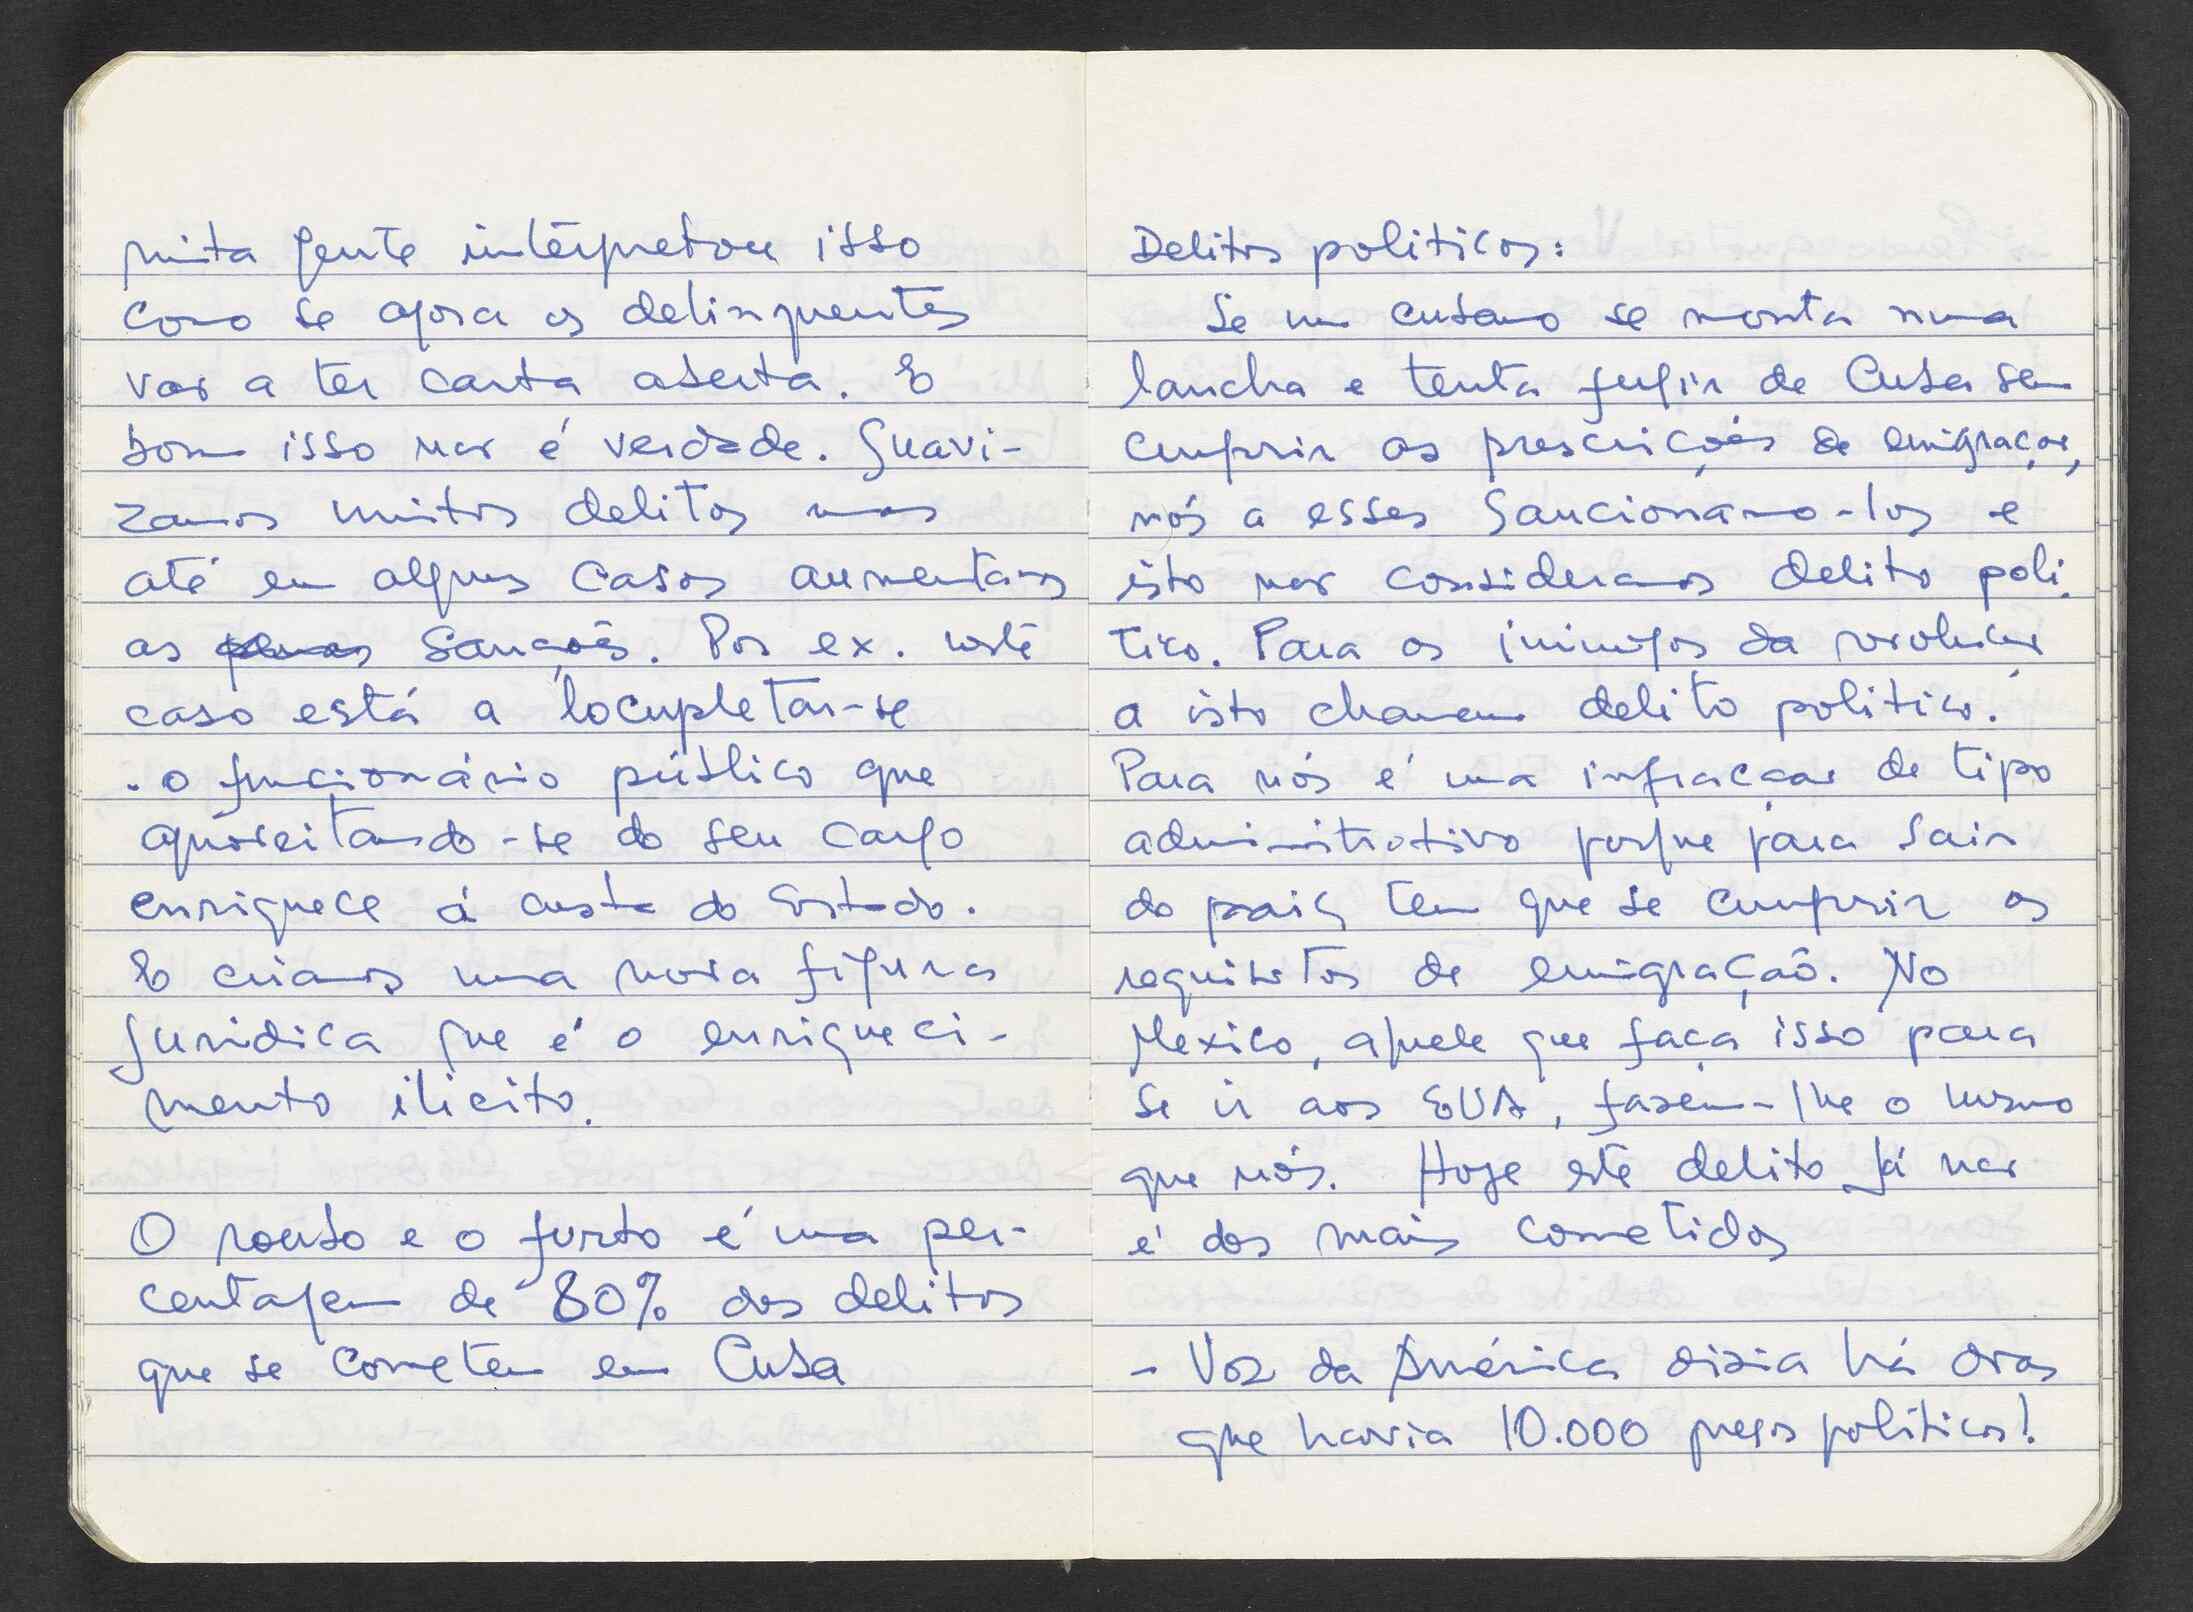 muita gente interpretou isso
como se agora os delinquentes
vão a ter carta aberta. E
bom isso não é verdade. Suavi-
zamos muitos delitos mas
até em alguns casos aumentamos
as penas sanções. Por ex. neste
caso está a locupletar-se
. o funcionário público que
aproveitando-se do seu cargo
enriquece á custa do Estado.
E criamos uma nova figura
juridica que é o enriqueci-
mento ilicito.
O roubo e o furto é uma per-
centagem de 80% dos delitos
que se cometem em Cuba
Delitos politicos:
Se um cubano se monta numa
lancha e tenta fugir de Cuba sem
cumprir as prescrições de emigração,
nós a esses sancionamo-los e
isto não consideramos delito poli
tico. Para os inimigos da revolução
a isto chamam delito politico.
Para nós é uma infracção de tipo
administrativo porque para sair
do país tem que se cumprir os
requisitos de emigração. No
Mexico, aquele que faça isso para
se ir aos EUA, fazem-lhe o mesmo
que nós. Hoje este delito já não
é dos mais cometidos
- Voz da América dizia há dias
que havia 10.000 presos politicos!